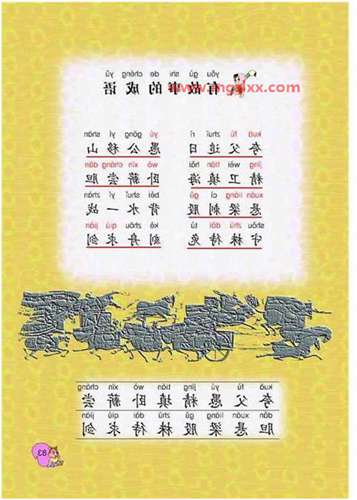 yǒu gù shi de chéng yǔ
有故事的成语
kuā fù zhuī rì yú gōng yí shān
夸父追日 愚公移山
jīng wèi tián hǎi wò xīn cháng dǎn
精卫填海 卧薪尝胆
xuán liáng cì gǔ bèi shuǐ yí zhàn
悬梁刺股 背水一战
shǒu zhū dài tù kè zhōu qiú jiàn
守株待兔 刻舟求剑
kuā fù yú yí tián wò xīn cháng
夸父愚移填卧薪尝
dǎn xuán liáng gǔ zhū dài qiú jiàn
胆悬梁股株待求剑
83